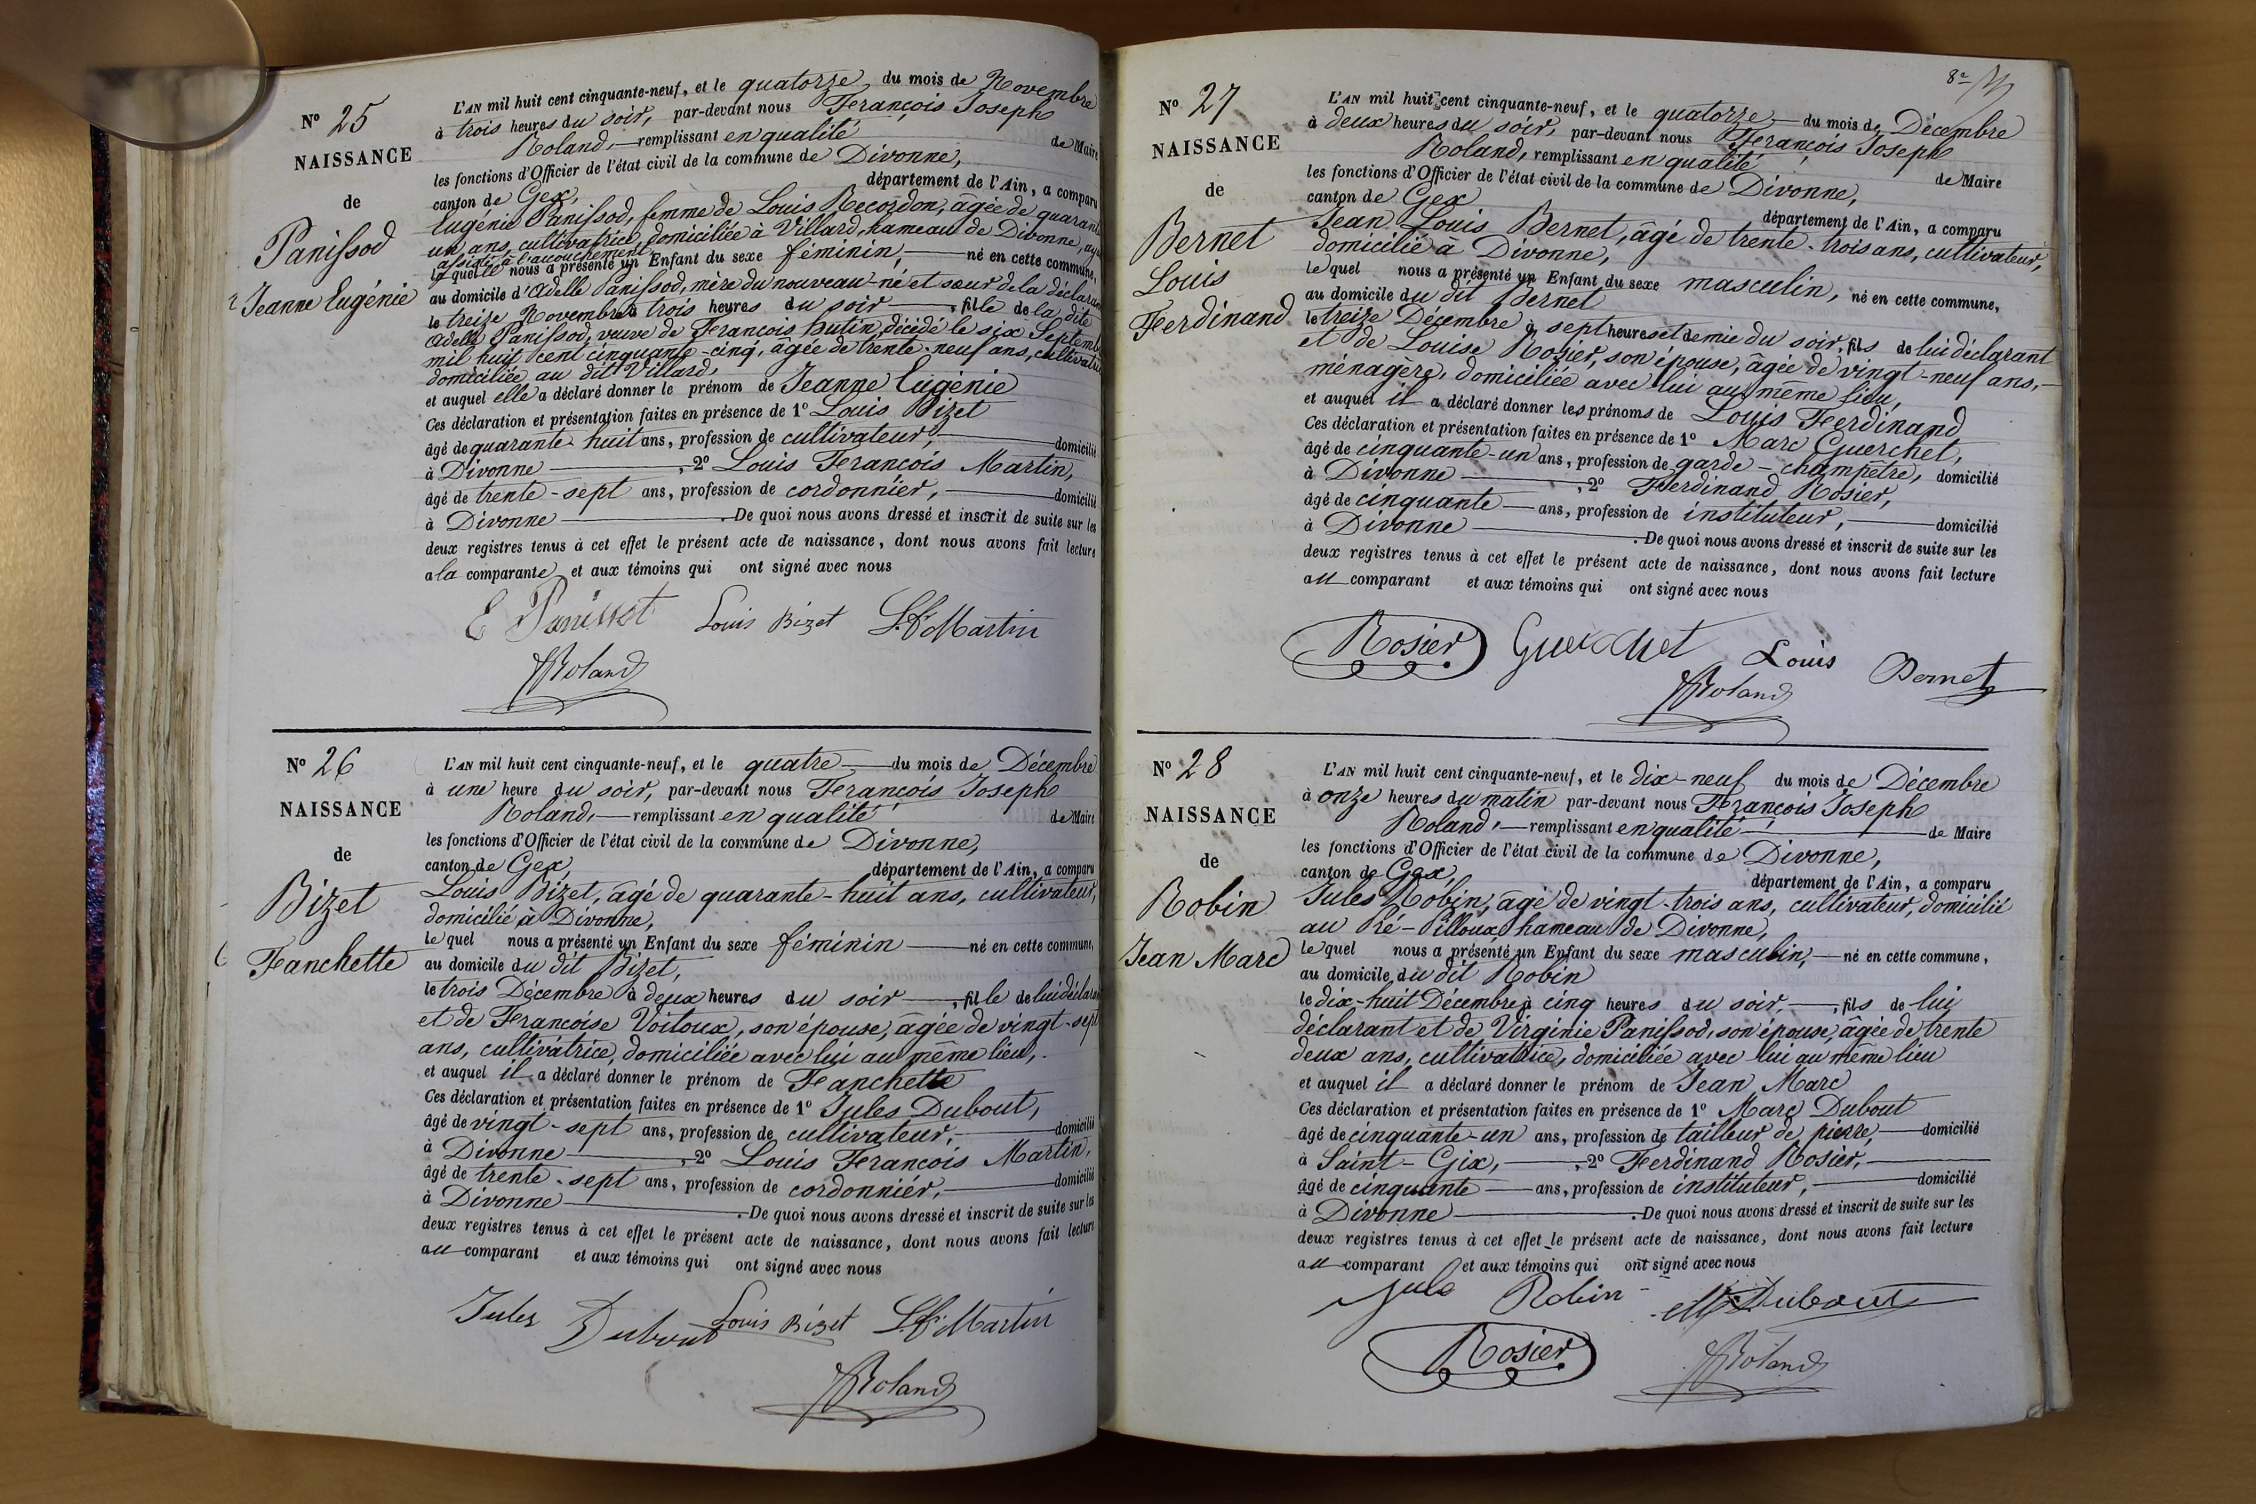 Nº 25
NAISSANCE
de
Panissod
Jeanne Eugénie
L'AN mil huit cent cinquante-neuf, et le quatorze du mois de Novembre
à trois heures du soir, par-devant nous François Joseph
Roland, remplissant en qualité de Maire
les fonctions d'Officier de l'état civil de la commune de Divonne,
canton de Gex, département de l'Ain, a comparu
Eugénie Panissod, femme de Louis Recordon, âgée de quarante
un ans, cultivatrice, domiciliée à Villard, hameau de Divonne, ayant
assisté à l'accouchement
laquelle nous a présenté un Enfant du sexe féminin, né en cette commune,
au domicile d'Adelle Panissod, mère du nouveau-né et sœur de la déclarante
le treize Novembre à trois heures du soir, fille de la dite
Adelle Panissod, veuve de François hutin, décédé le six Septembre
mil huit cent cinquante-cinq, âgée de trente-neuf ans, cultivatrice
domiciliée au dit Villard,
et auquel elle a déclaré donner le prénom de Jeanne Eugénie
Ces déclaration et présentation faites en présence de 1º Louis Bizet
âgé de quarante-huit ans, profession de cultivateur, domicilié
à Divonne, 2º Louis François Martin,
âgé de trente-sept ans, profession de cordonnier, domicilié
à Divonne. De quoi nous avons dressé et inscrit de suite sur les
deux registres tenus à cet effet le présent acte de naissance, dont nous avons fait lecture
a la comparante et aux témoins qui ont signé avec nous
E Panissot Louis Bizet L. fs Martin
Roland
Nº 26
NAISSANCE
de
Bizet
Fanchette
L'AN mil huit cent cinquante-neuf, et le quatre du mois de Décembre
à une heure du soir, par-devant nous François Joseph
Roland, remplissant en qualité de Maire
les fonctions d'Officier de l'état civil de la commune de Divonne,
canton de Gex, département de l'Ain, a comparu
Louis Bizet, âgé de quarante-huit ans, cultivateur,
domicilié à Divonne,
lequel nous a présenté un Enfant du sexe féminin né en cette commune,
au domicile du dit Bizet,
le trois Décembre à deux heures du soir, fille de lui déclarant
et de Françoise Voitoux, son épouse, âgée de vingt-sept
ans, cultivatrice, domiciliée avec lui au même lieu,
et auquel il a déclaré donner le prénom de Fanchette
Ces déclaration et présentation faites en présence de 1º Jules Dubout,
âgé de vingt-sept ans, profession de cultivateur, domicilié
à Divonne, 2º Louis François Martin,
âgé de trente-sept ans, profession de cordonnier, domicilié
à Divonne. De quoi nous avons dressé et inscrit de suite sur les
deux registres tenus à cet effet le présent acte de naissance, dont nous avons fait lecture
au comparant et aux témoins qui ont signé avec nous
Jules Dubout Louis Bizet L. fs Martin
Roland
Nº 27
NAISSANCE
de
Bernet
Louis
Ferdinand
L'AN mil huit cent cinquante-neuf, et le quatorze du mois de Décembre
à deux heures du soir, par-devant nous François Joseph
Roland, remplissant en qualité de Maire
les fonctions d'Officier de l'état civil de la commune de Divonne,
canton de Gex département de l'Ain, a comparu
Jean Louis Bernet, âgé de trente-trois ans, cultivateur,
domicilié à Divonne,
lequel nous a présenté un Enfant du sexe masculin, né en cette commune,
au domicile du dit Bernet
le treize Décembre à sept heures et demie du soir, fils de lui déclarant
et de Louise Rosier, son épouse, âgée de vingt-neuf ans,
ménagère, domiciliée avec lui au même lieu,
et auquel il a déclaré donner les prénoms de Louis Ferdinand
Ces déclaration et présentation faites en présence de 1º Marc Guerchet,
âgé de cinquante-un ans, profession de garde-champêtre, domicilié
à Divonne, 2º Ferdinand Rosier,
âgé de cinquante ans, profession de instituteur, domicilié
à Divonne. De quoi nous avons dressé et inscrit de suite sur les
deux registres tenus à cet effet le présent acte de naissance, dont nous avons fait lecture
au comparant et aux témoins qui ont signé avec nous
Rosier Guerchet Louis Bernet
Roland
Nº 28
NAISSANCE
de
Robin
Jean Marc
L'AN mil huit cent cinquante-neuf, et le dix-neuf du mois de Décembre
à onze heures du matin par-devant nous François Joseph
Roland, remplissant en qualité de Maire
les fonctions d'Officier de l'état civil de la commune de Divonne,
canton de Gex, département de l'Ain, a comparu
Jules Robin, âgé de vingt-trois ans, cultivateur, domicilié
au Pré-Pilloux hameau de Divonne,
lequel nous a présenté un Enfant du sexe masculin, né en cette commune,
au domicile du dit Robin
le dix-huit Décembre à cinq heures du soir, fils de lui
déclarant et de Virginie Panissod, son épouse, âgée de trente
deux ans, cultivatrice, domiciliée avec lui au même lieu
et auquel il a déclaré donner le prénom de Jean Marc
Ces déclaration et présentation faites en présence de 1º Marc Dubout
âgé de cinquante-un ans, profession de tailleur de pierre, domicilié
à Saint-Gix, 2º Ferdinand Rosier,
âgé de cinquante ans, profession de instituteur, domicilié
à Divonne. De quoi nous avons dressé et inscrit de suite sur les
deux registres tenus à cet effet le présent acte de naissance, dont nous avons fait lecture
au comparant et aux témoins qui ont signé avec nous
Jule Robin M. Dubout
Rosier Roland